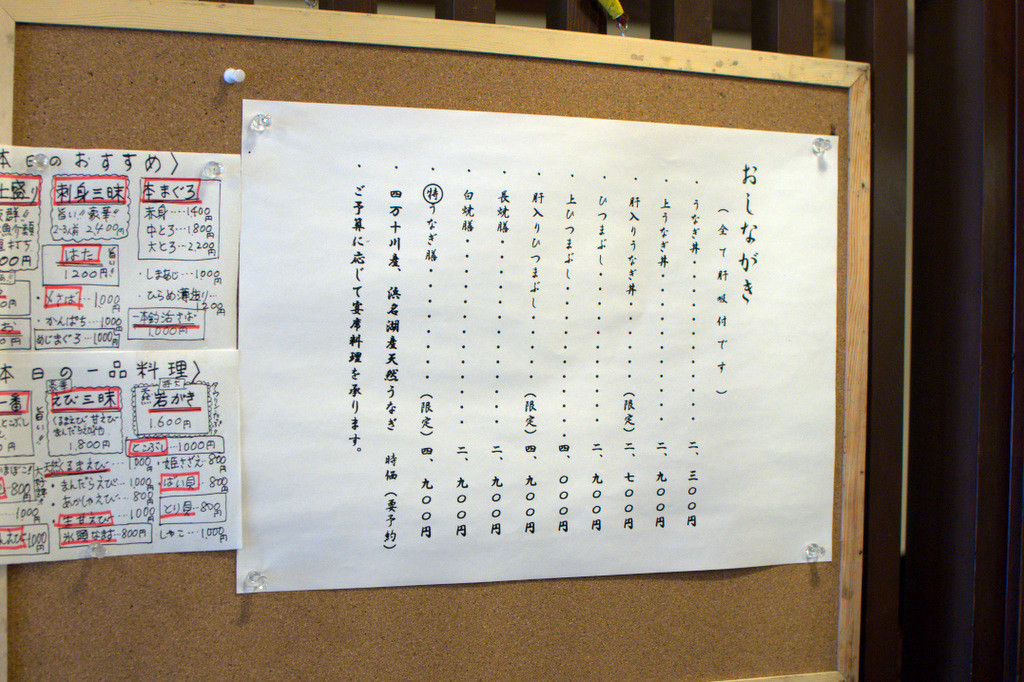 おしながき
(全て肝吸付です)
・うなぎ丼・・・・・・・・・・二、三〇〇円
・上うなぎ丼・・・・・・・・・二、九〇〇円
・肝入りうなぎ丼・・・(限定)二、七〇〇円
・ひつまぶし・・・・・・・・・二、九〇〇円
・上ひつまぶし・・・・・・・・四、〇〇〇円
・肝入りひつまぶし・・・(限定)四、九〇〇円
・長蛻膳・・・・・・・・・・・二、九〇〇円
・白蛻膳・・・・・・・・・・・二、九〇〇円
・特うなぎ膳・・・・・・(限定)四、九〇〇円
・四万十川産、浜名湖産天然うなぎ 時価(要予約)
・ご予算に応じて宴席料理を承ります。
本日のおすすめ〉
本まぐろ
赤身‥‥1400円
中とろ‥1,800円
大とろ‥2,200円
・しまあじ‥‥1000円
・ひらめ薄造り‥1200円
一本釣活さば‥1,000円
刺身三昧
旨い!!豪華!!
2~3人前 2,400円
はた
旨い!!
1200円
・〆さば‥‥1,000円
・かんぱち‥‥1000円
めじまぐろ‥1000円
本日の一品料理〉
岩がき
1.600円
とこぶし‥‥1000円
・姫さざえ‥800円
・ばい貝‥‥800円
とり貝‥800円
しゃこ‥‥1,000円
えび三昧
1.800円
くるまえび‥‥1000円
・まんだらえび‥‥1,000円
・あかしゃえび‥‥800円
・生甘えび‥‥1,000円
氷頭なます‥‥800円